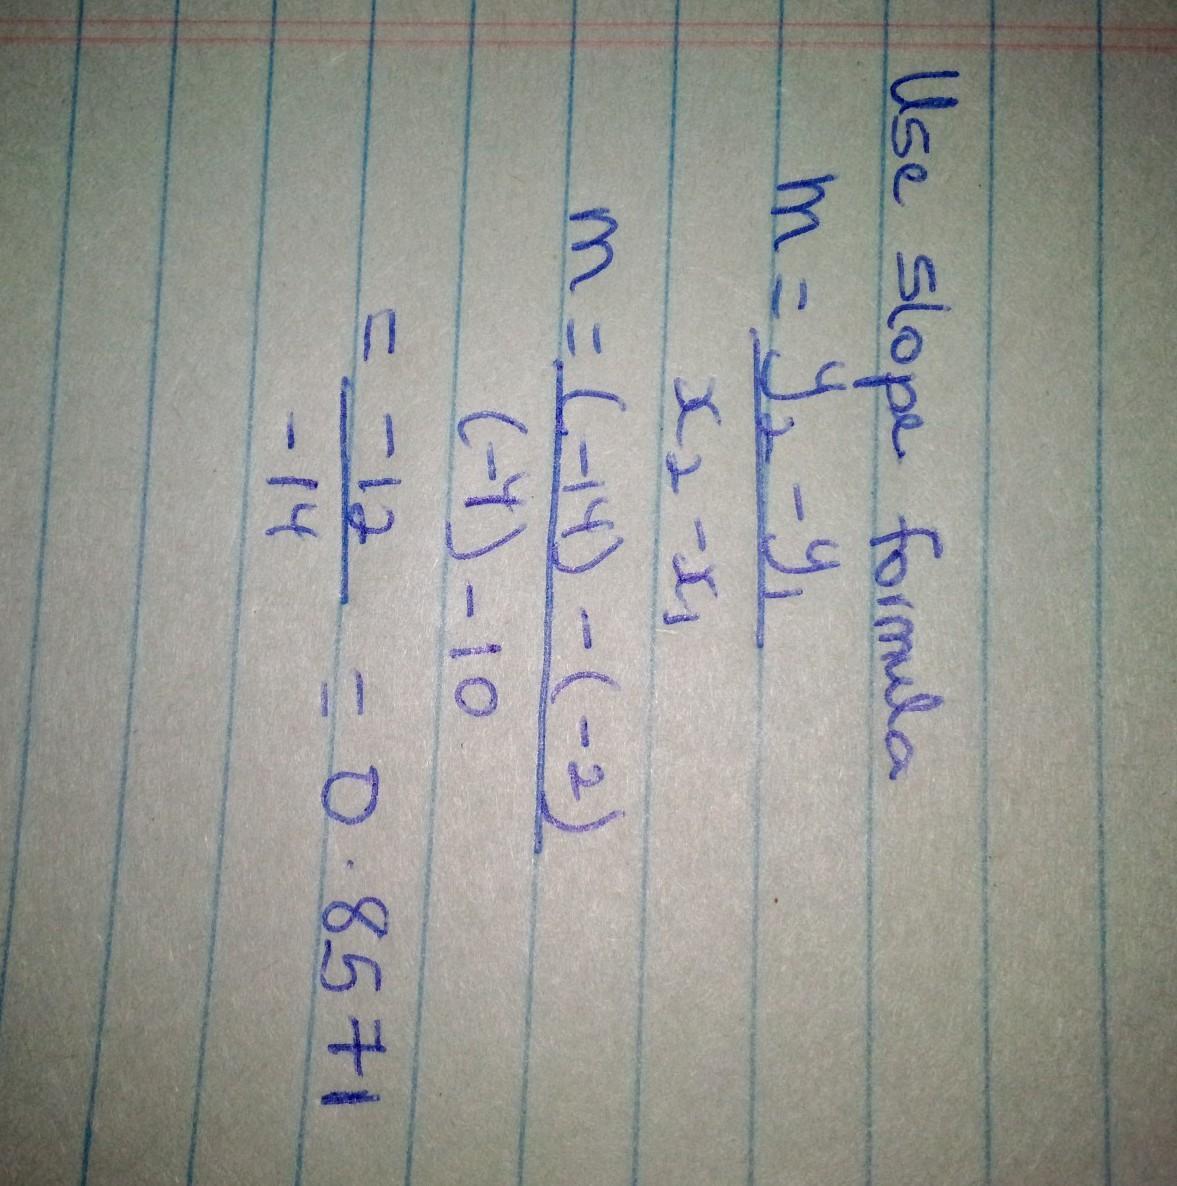 Use slope formula
m = y₂ - y₁
x₂ - x₁
m = (-14) - (-2)
(-4) - 10
= -12 = 0.8571
-14